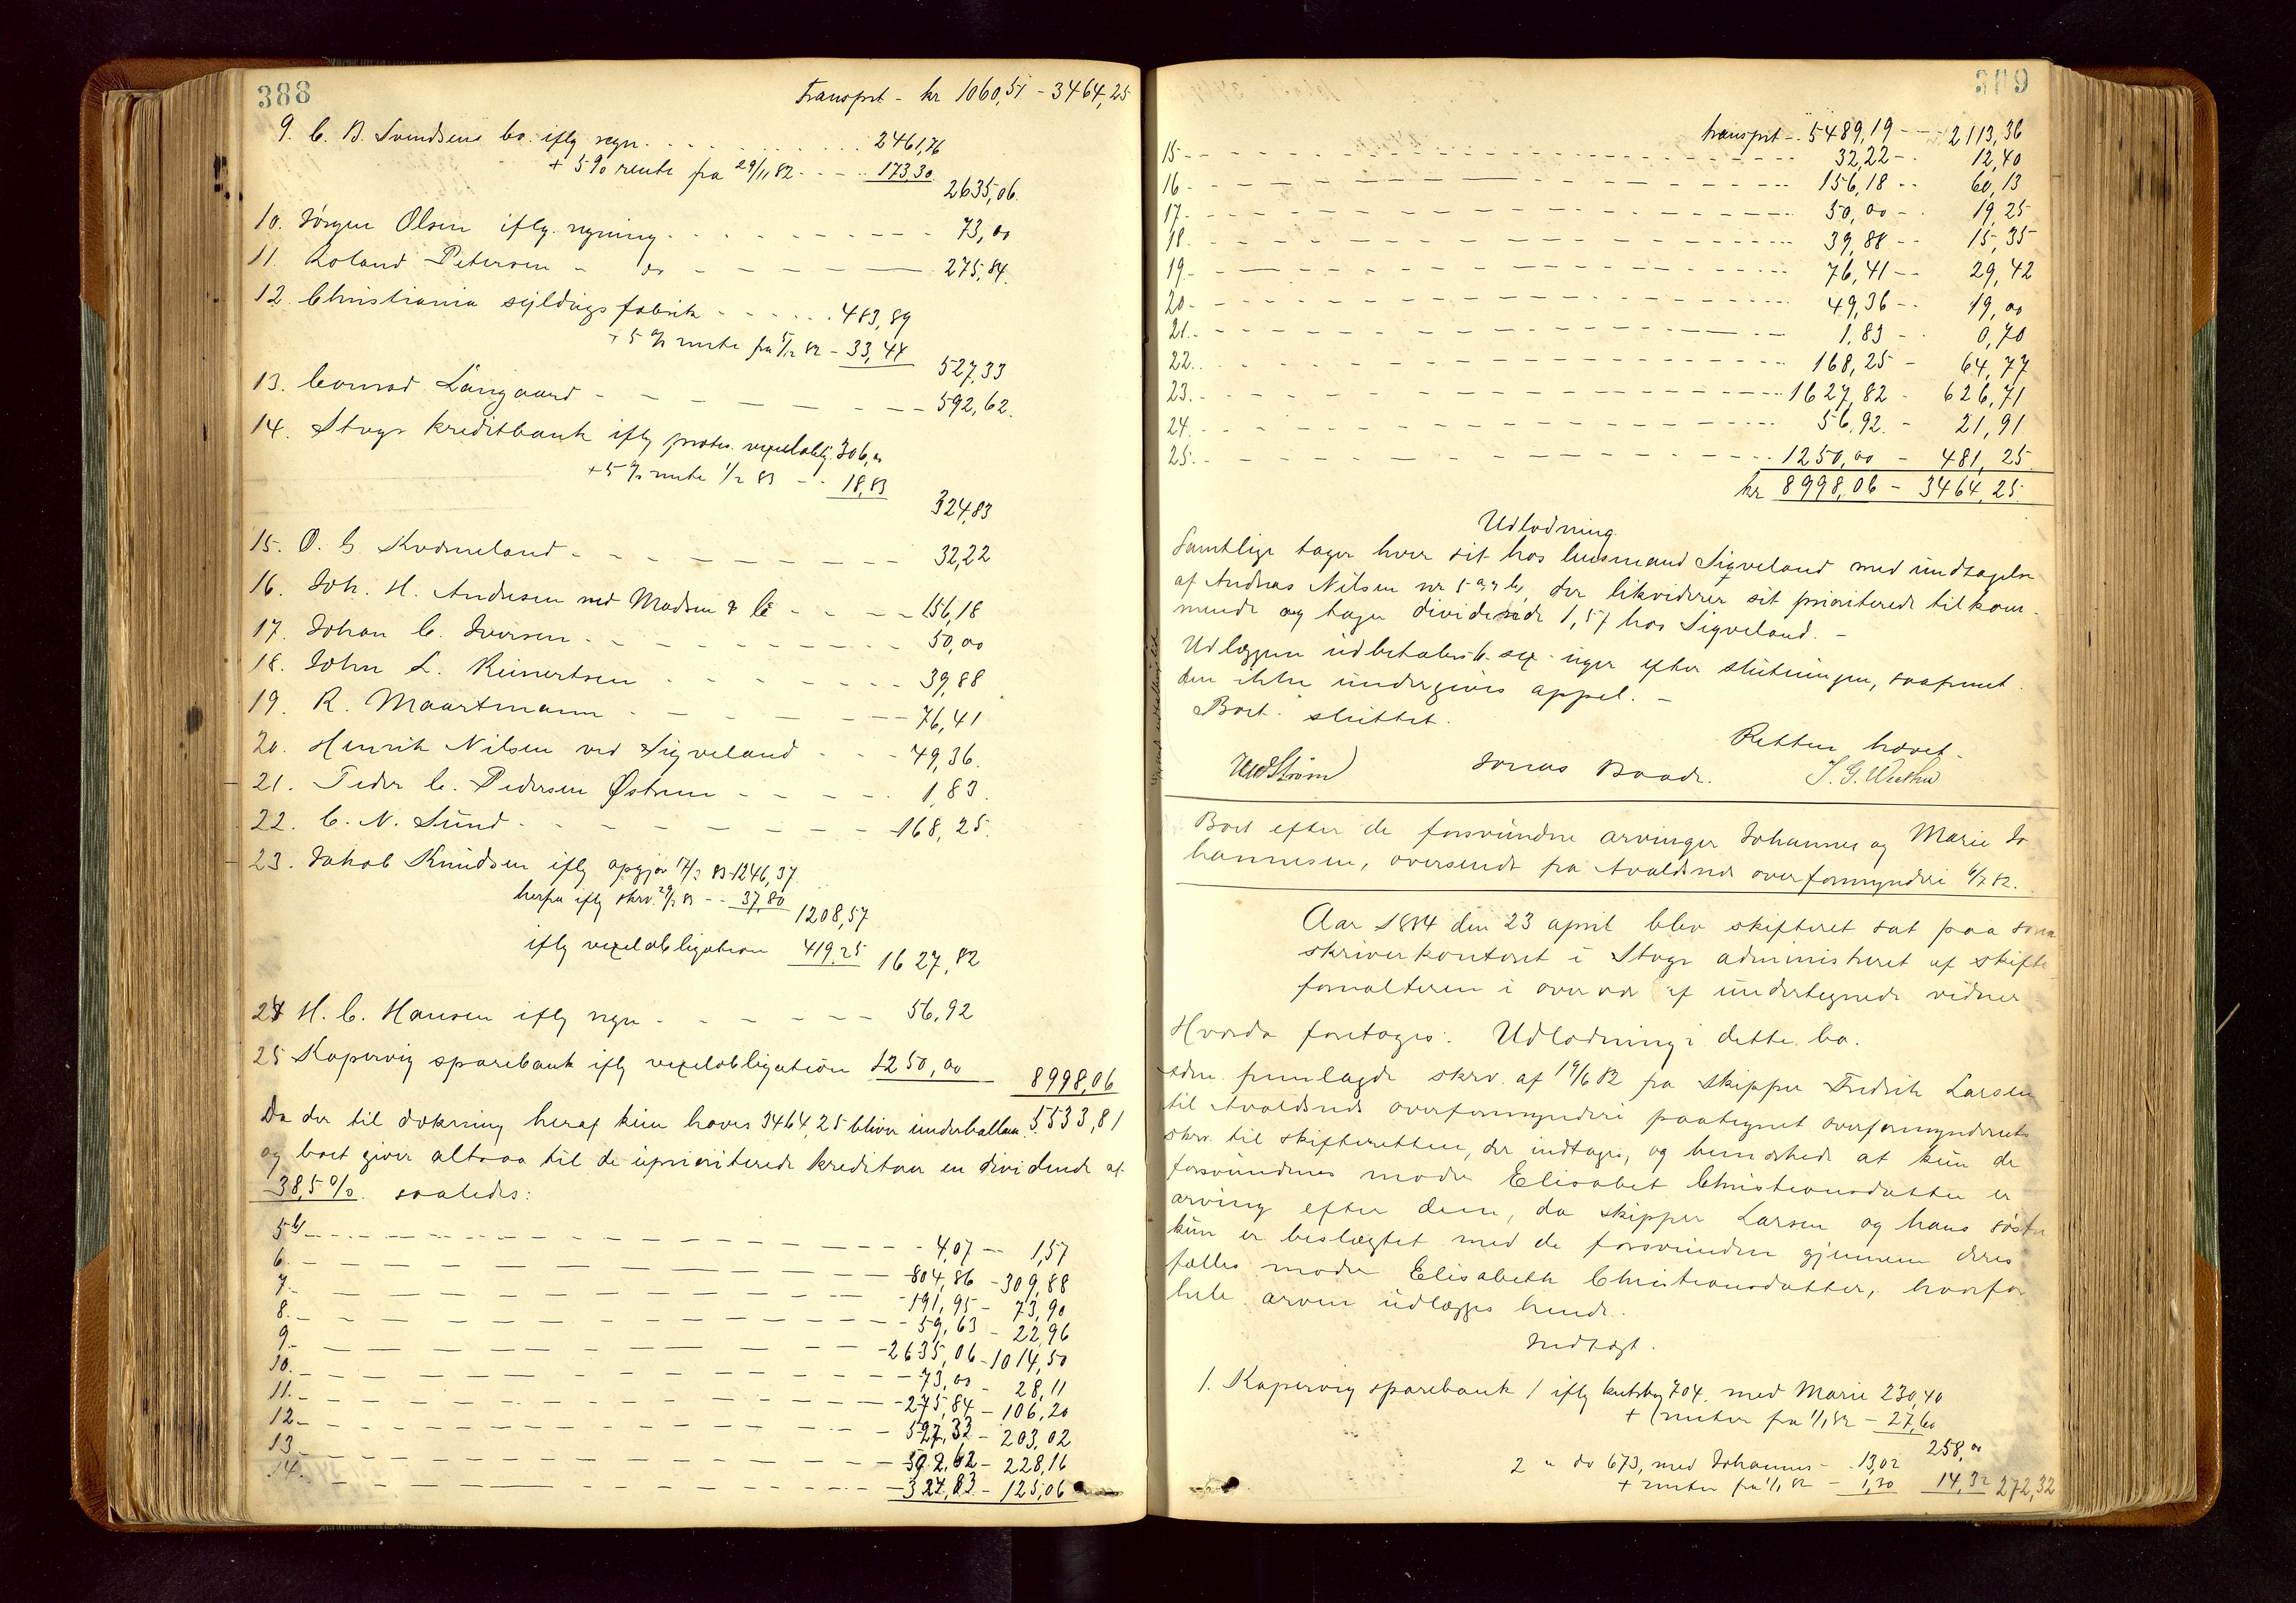 388
Transprt - kr 1060,51 - 3464,25
9. C. B. Svendsens bo iflg regn. 2461,76
+ 5% rente fra 29/11 82 - 173,30
2635,06.
10. Jörgen Olsen iflg. regning - 73,00
11. Roland Petersen - do - 275,84.
12. Christiania sejldugsfabrik - 483,89
+ 5% rente fra 5/12 82 - 33,44
527,33
13. Conrad Långaard - 592,62.
14. Stvgr kreditbank iflg protes. vexeloblig. 306,00
+ 5% rente 1/2 83 - 18,83
324,83
15. O. G. Kvdmeland - 32,22
16. Joh. H. Andresen ved Madsen & Co - 156,18
17. Johan C. Iversen - 50,00
18. John L. Reinertsen - 39,88
19. R. Maartmann - 76,41
20. Henrik Nilsen ved Sigveland - 49,36.
21. Peder C. Pedersen Østrem - 1,83.
22. C. N. Sund - 168,25.
23. Jakob Knudsen iflg opgjør 17/3 83 1246,37
herfra iflg skrv. 29/3 83 - 37,80
1208,57
iflg vexelobligation 419,25 1627,82
24 H. C. Hansen iflg regn - 56,92
25 Kopervig sparebank iflg vexelobligation 1250,00
8998,06
Da der til dækning heraf kun haves 3464,25 bliver underballan. 5533,81
og boet giver altsaa til de uprioriterede kreditorer en dividende af
38,5%. saaledes:
5b - 4,07 - 1,57
6. - 804,86 - 309,88
7. - 191,95 - 73,90
8. - 59,63 - 22,96
9. - 2635,06 - 1014,50
10. - 73,00 - 28,11
11. - 275,84 - 106,20
12. - 527,33 - 203,02
13 - 592,62 - 228,16
14. - 324,83 - 125,06
389
transprt - 5489,19 - 2113,36
15 - 32,22 - 12,40
16 - 156,18 - 60,13
17. - 50,00 - 19,25
18. - 39,88 - 15,35
19. - 76,41 - 29,42
20 - 49,36 - 19,00
21. - 1,83 - 0,70
22. - 168,25 - 64,77
23. - 1627,82 - 626,71
24. - 56,92. - 21,91
25. - 1250,00 - 481,25
kr 8998,06 - 3464,25
Udlodning.
Samtlige tager hver sit hos lensmand Sigveland med undtagelse
af Andreas Nilsen nr 5 a og b, der likviderer sit prioriterede tilkom-
mende og tager dividende 1,57 hos Sigveland. -
Udlæggene udbetales 6 - sex - uger efter slutningen, saafremt
den ikke undergives appel. -
Boet sluttet.
Retten hævet -
Jonas Baade. J. G. Wathne
Boet efter de forsvundne arvinger Johannes og Marie Jo
hannesen, oversendt fra Avaldsnes overformynderi 6/7 82.
Aar 1884 den 23 april blev skifteret sat paa soren
skriverkontoret i Stvgr administreret af skifte
forvalteren i overvær af undertegnede vidner
Hvorda foretoges: Udlodning i dette bo.
adm. fremlagde skrv. af 19/6 82 fra skipper Fredrik Larsen
til Avaldsnes overformynderi paategnet overformynderiets
skrv. til skifteretten, der indtages, og bemærkede at kun de
forsvundnes moder Elisabet Christiansdatter er
arving efter dem, da skipper Larsen og hans søster
kun er beslægtet med de forsvundne gjennem deres
fælles moder Elisabeth Christiansdatter, hvorfor
hele arven udlægges hende.
Indtægt.
1. Kopervig sparebank 1 iflg kntrbg 704. med Marie 230,40
+ renter fra 1/1 82 - 27,60
258,00
2 " do 673, med Johannes - 13,02
+ renter fra 1/1 82 - 1,30 14,32 272,32